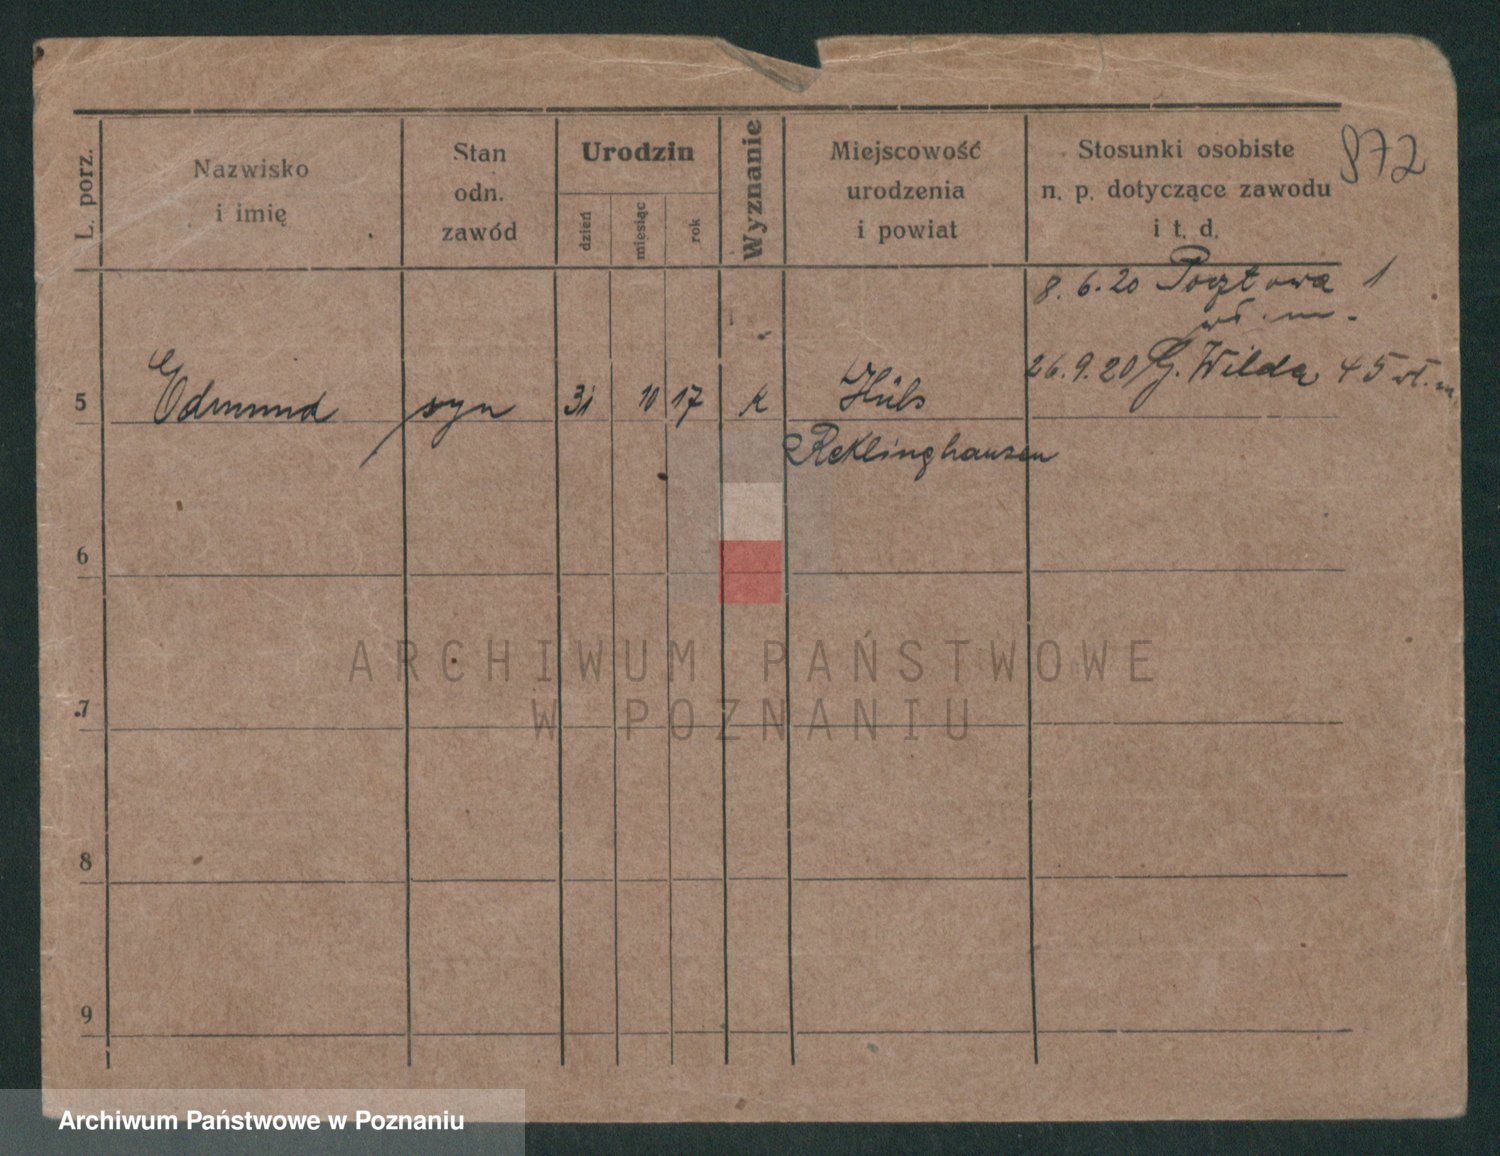 L. porz.
Nazwisko
i imię
Stan
odn.
zawód
Urodzin
dzień
miesiąc
rok
Wyznanie
Miejscowość
urodzenia
i powiat
Stosunki osobiste
n. p. dotyczące zawodu
i t. d.
872
8.6.20 Pocztowa 1
wł. m.
26.9.20 G. Wilda 45 wł. m.
5 Edmund syn 31 10 17 k Hüls
Reklinghausen
6
7
8
9
ARCHIWUM PAŃSTWOWE
W POZNANIU
Archiwum Państwowe w Poznaniu